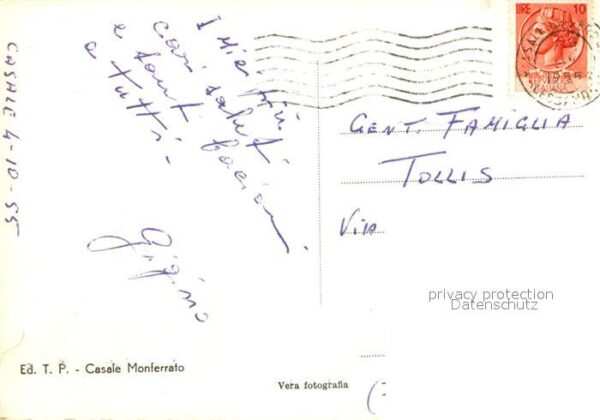 CASALE 4-10-55
I miei più
cari saluti
e tanti bacioni
a tutti -
Gigino
LIRE 10
GENT. FAMIGLIA
TOLLIS
VIA
privacy protection
Datenschutz
Ed. T. P. - Casale Monferrato
Vera fotografia